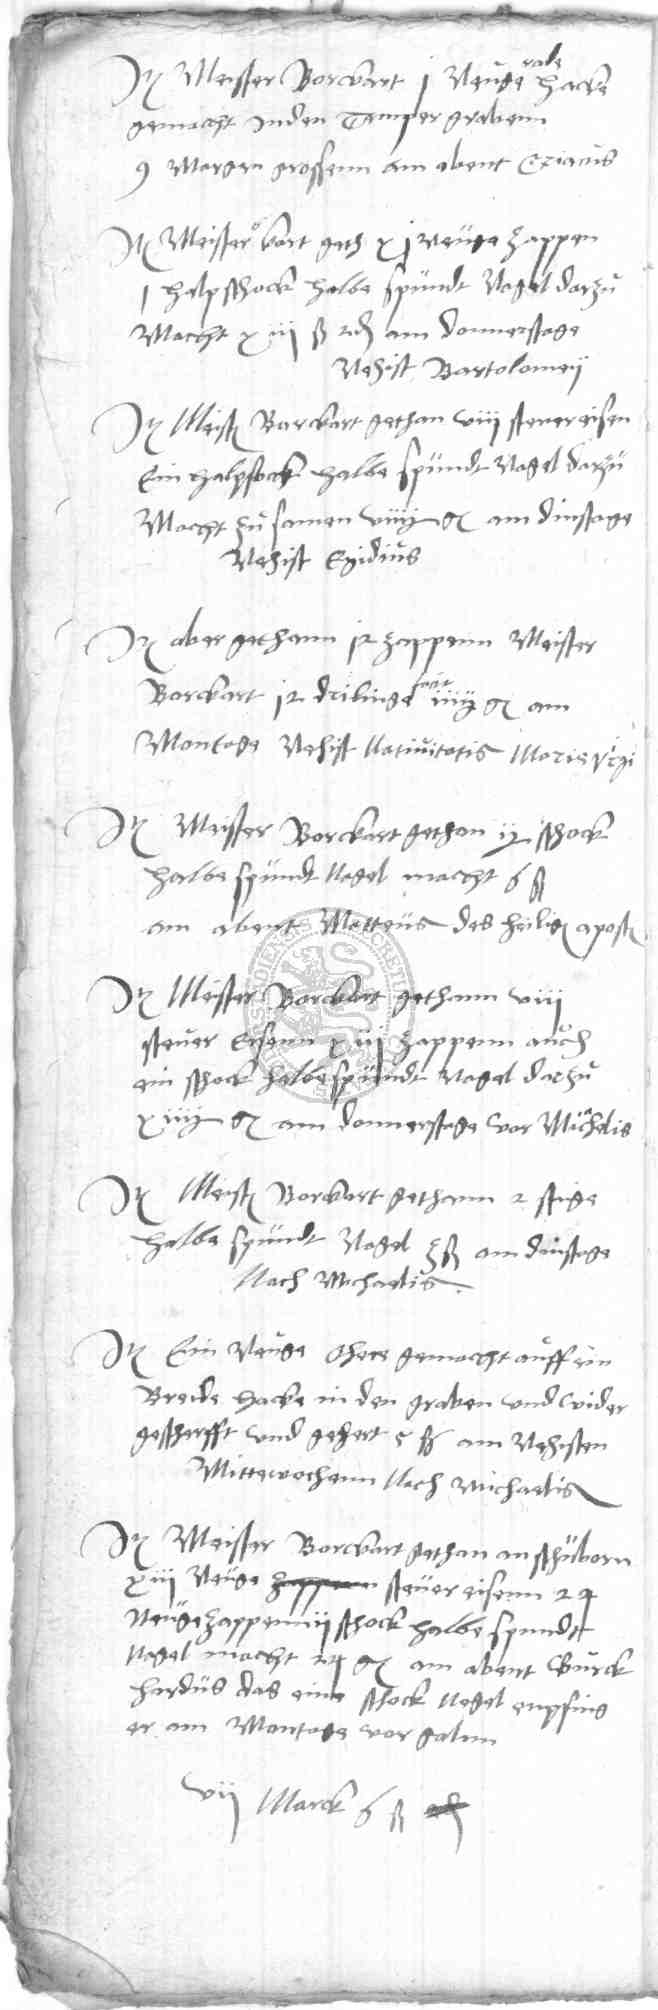 Jt Meister Borckart j Neuge rade hacke
gemacht Inden Temper grabenn
9 Morgen grossenn am abent Ciriacus
Jt Meister kart geth xj neuge zappen
1 halpschock halbe spündt Nagel darzu
Macht xiij ß am donnerstage
Nehist Bartolomeij
Jt Meist Borckart gethan viij steuereisen
Ein halpschock halbe spündt Nagel darzu
Macht zu samen g am dinstage
Nehist Egidius
Jt aber gethann 12 zappenn Meister
Borckart 12 drilinge facit g am
Montage Nehist Natiuitatis Marie virgi
Jt Meister Borckart gethan schock
halbe spündt Nagel macht 6 ß
am abent Matteus des heilig apost
Jt Meister Borckart gethann viij
steuer Eisenn xiij zappenn auch
ein schock halbe spündt Nagel darzu
g am donnerstage vor Michelis
Jt Meist Borckart gethann 2 stige
halbe spündt Nagel ß am dinstage
Nach Michaelis
Jt Ein Neuge Ohere gemacht auff ein
Breide hacke in den graben vnd wider
gescherfft vnd gehert 5 ß am Nehisten
Mittewochenn Nach Michaelis
Jt Meister Borckart gethan an schüborn
xiij Neuge steuereisenn 24
Neuge zappenn ij schock halbe spundt
Nagel macht g am abent Burck
hardus das eine schock Negel enpfing
er am Montage vor galun
vij Marck 6 ß